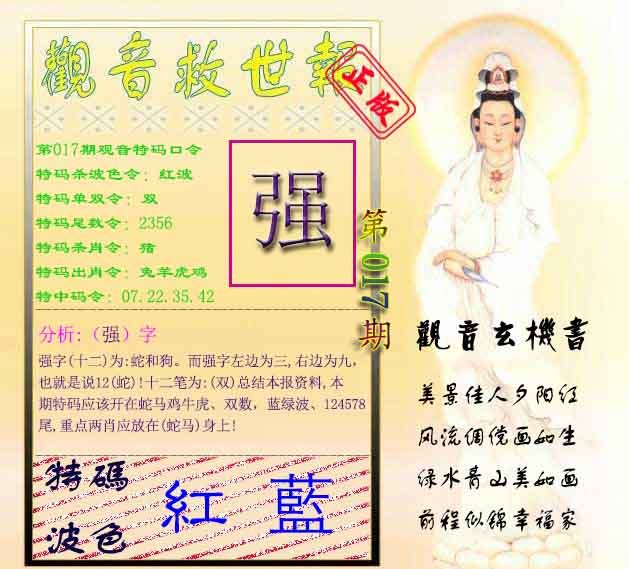 觀音救世報
正版
第017期观音特码口令
特码杀波色令：红波
特码单双令：双
特码尾数令：2356
特码杀肖令：猪
特码出肖令：兔羊虎鸡
特中码令：07.22.35.42
强
第017期
分析:（强）字
强字(十二)为:蛇和狗。而强字左边为三,右边为九，
也就是说12(蛇)!十二笔为:(双)总结本报资料,本
期特码应该开在蛇马鸡牛虎、双数，蓝绿波、124578
尾,重点两肖应放在(蛇马)身上!
特碼
波色
紅 藍
觀音玄機書
美景佳人夕阳红
风流倜傥画如生
绿水青山美如画
前程似锦幸福家